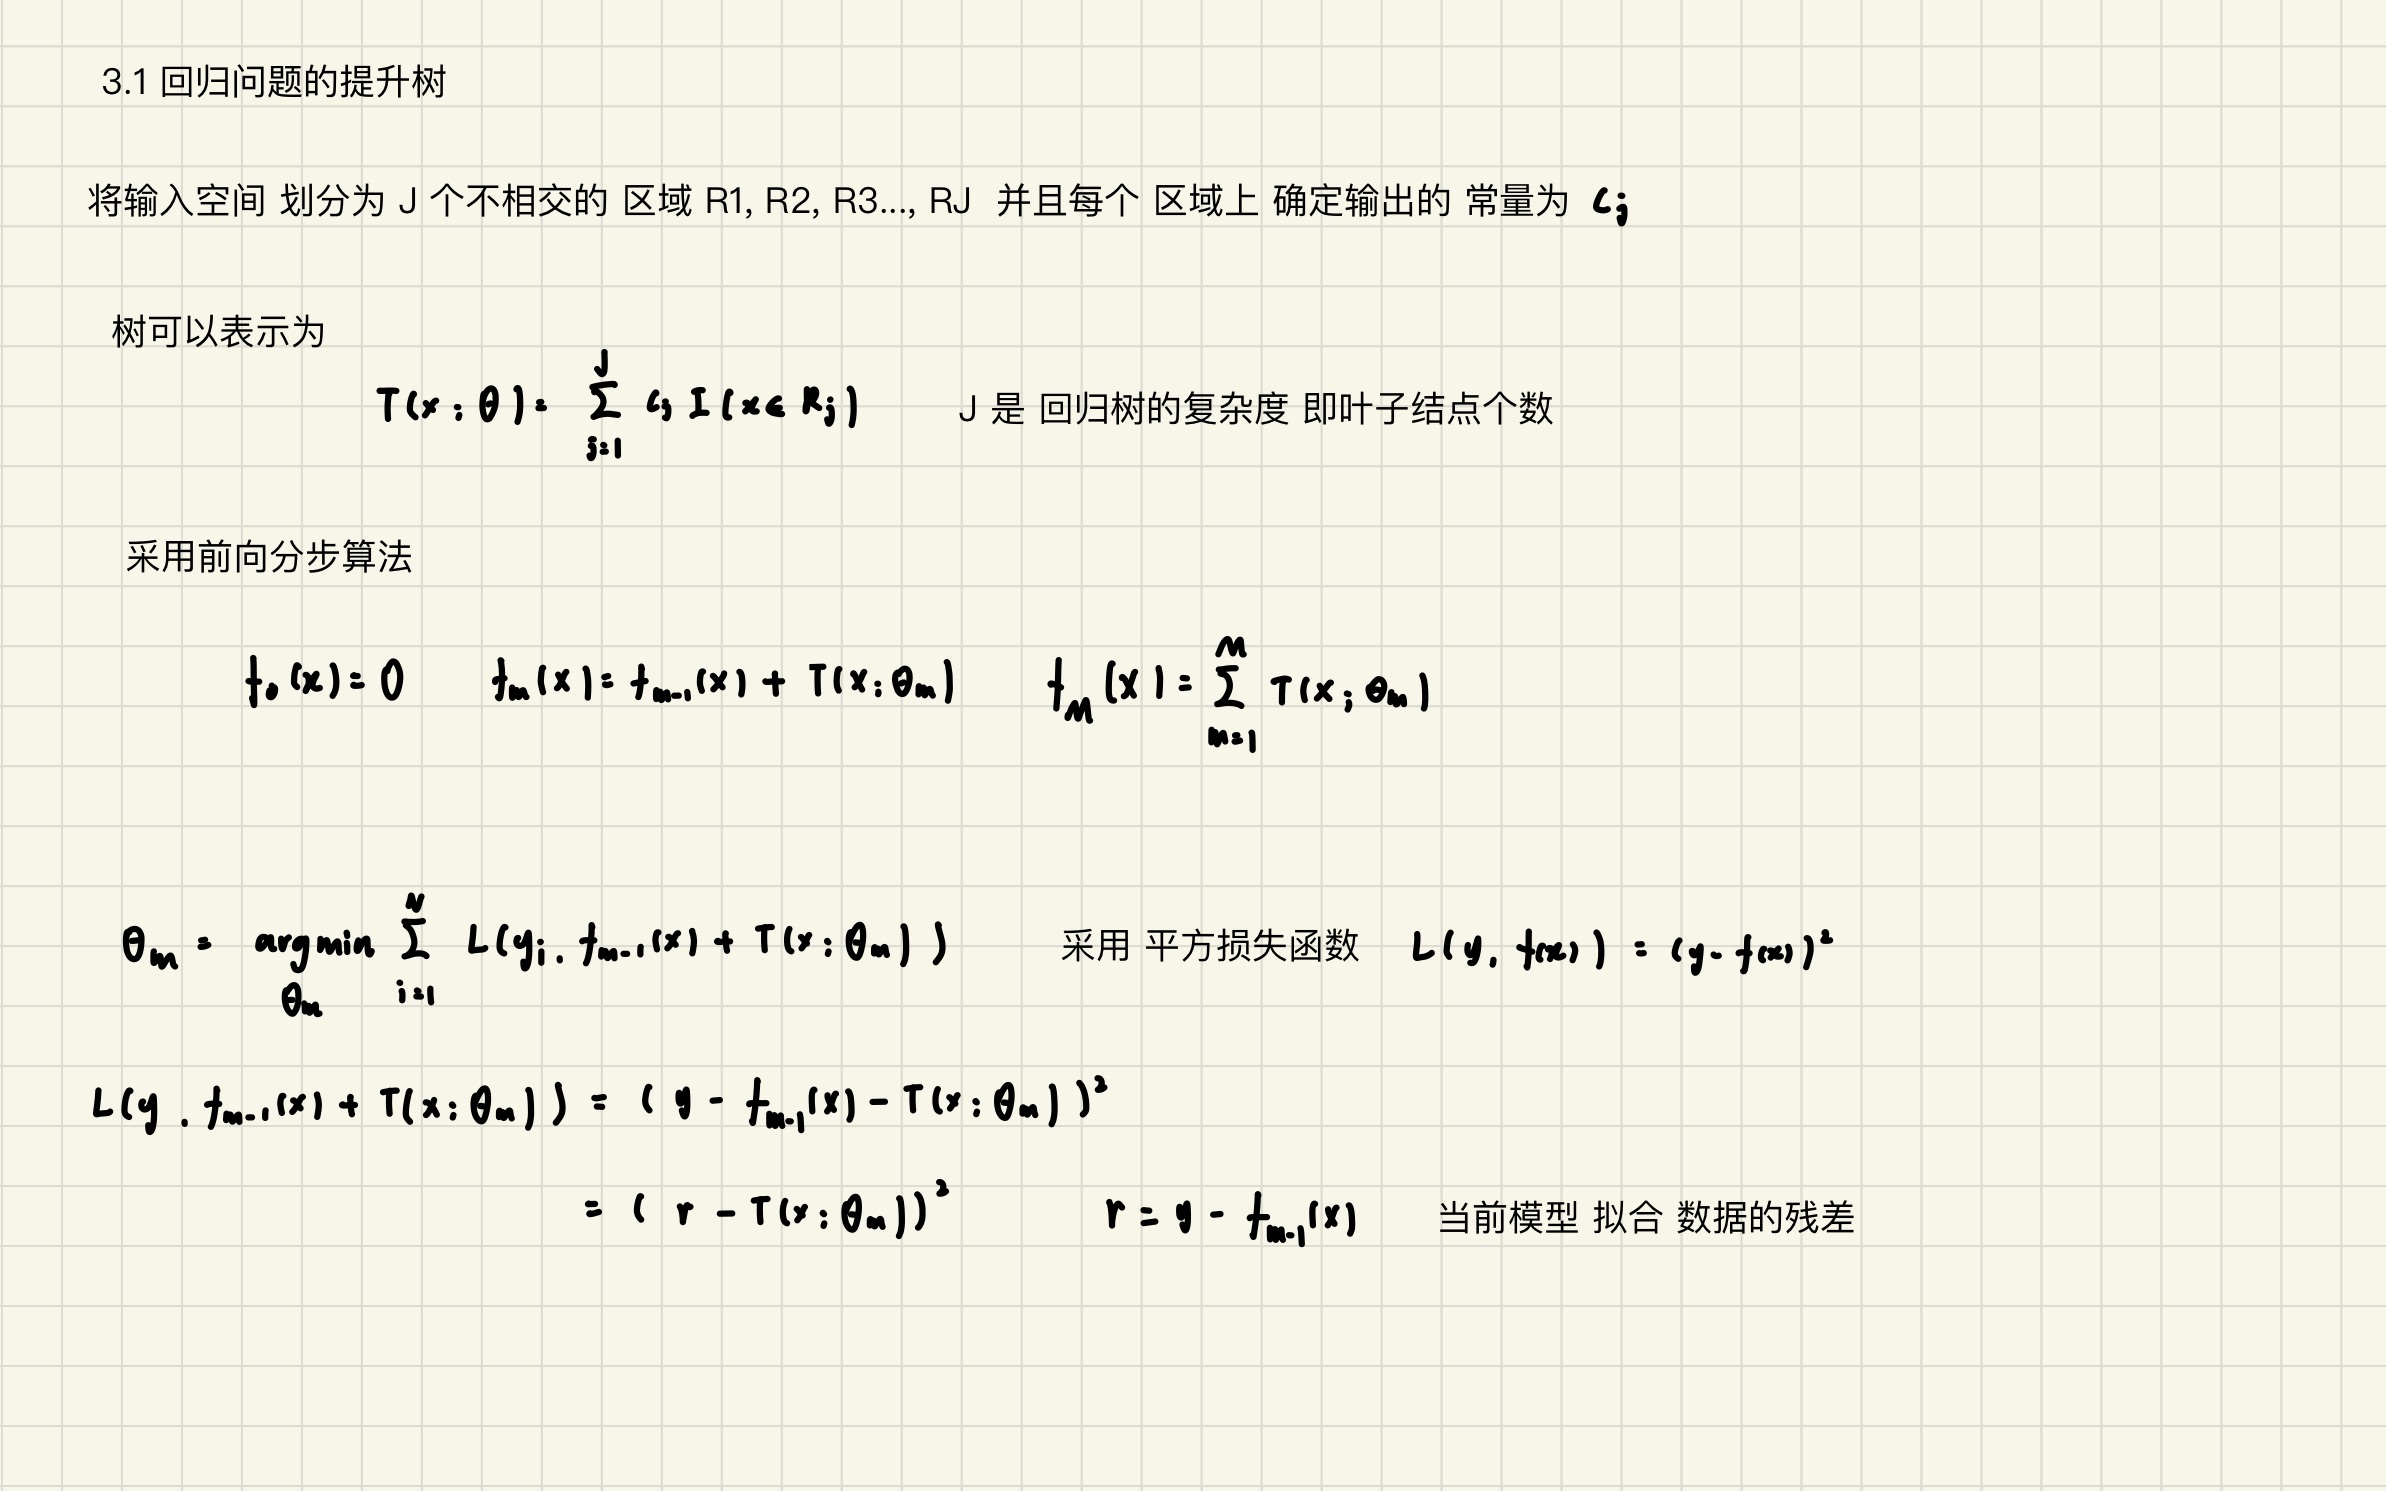 3.1 回归问题的提升树
将输入空间 划分为 J 个不相交的 区域 R1, R2, R3..., RJ 并且每个 区域上 确定输出的 常量为 c_j
树可以表示为
T(x; θ) = Σ_{j=1}^{J} c_j I(x ∈ R_j) J 是 回归树的复杂度 即叶子结点个数
采用前向分步算法
f_0(x) = 0 f_m(x) = f_{m-1}(x) + T(x; θ_m) f_M(x) = Σ_{m=1}^{M} T(x; θ_m)
θ_m = argmin_{θ_m} Σ_{i=1}^{N} L(y_i, f_{m-1}(x) + T(x; θ_m)) 采用 平方损失函数 L(y, f(x)) = (y - f(x))²
L(y, f_{m-1}(x) + T(x; θ_m)) = (y - f_{m-1}(x) - T(x; θ_m))²
= (r - T(x; θ_m))² r = y - f_{m-1}(x) 当前模型 拟合 数据的残差